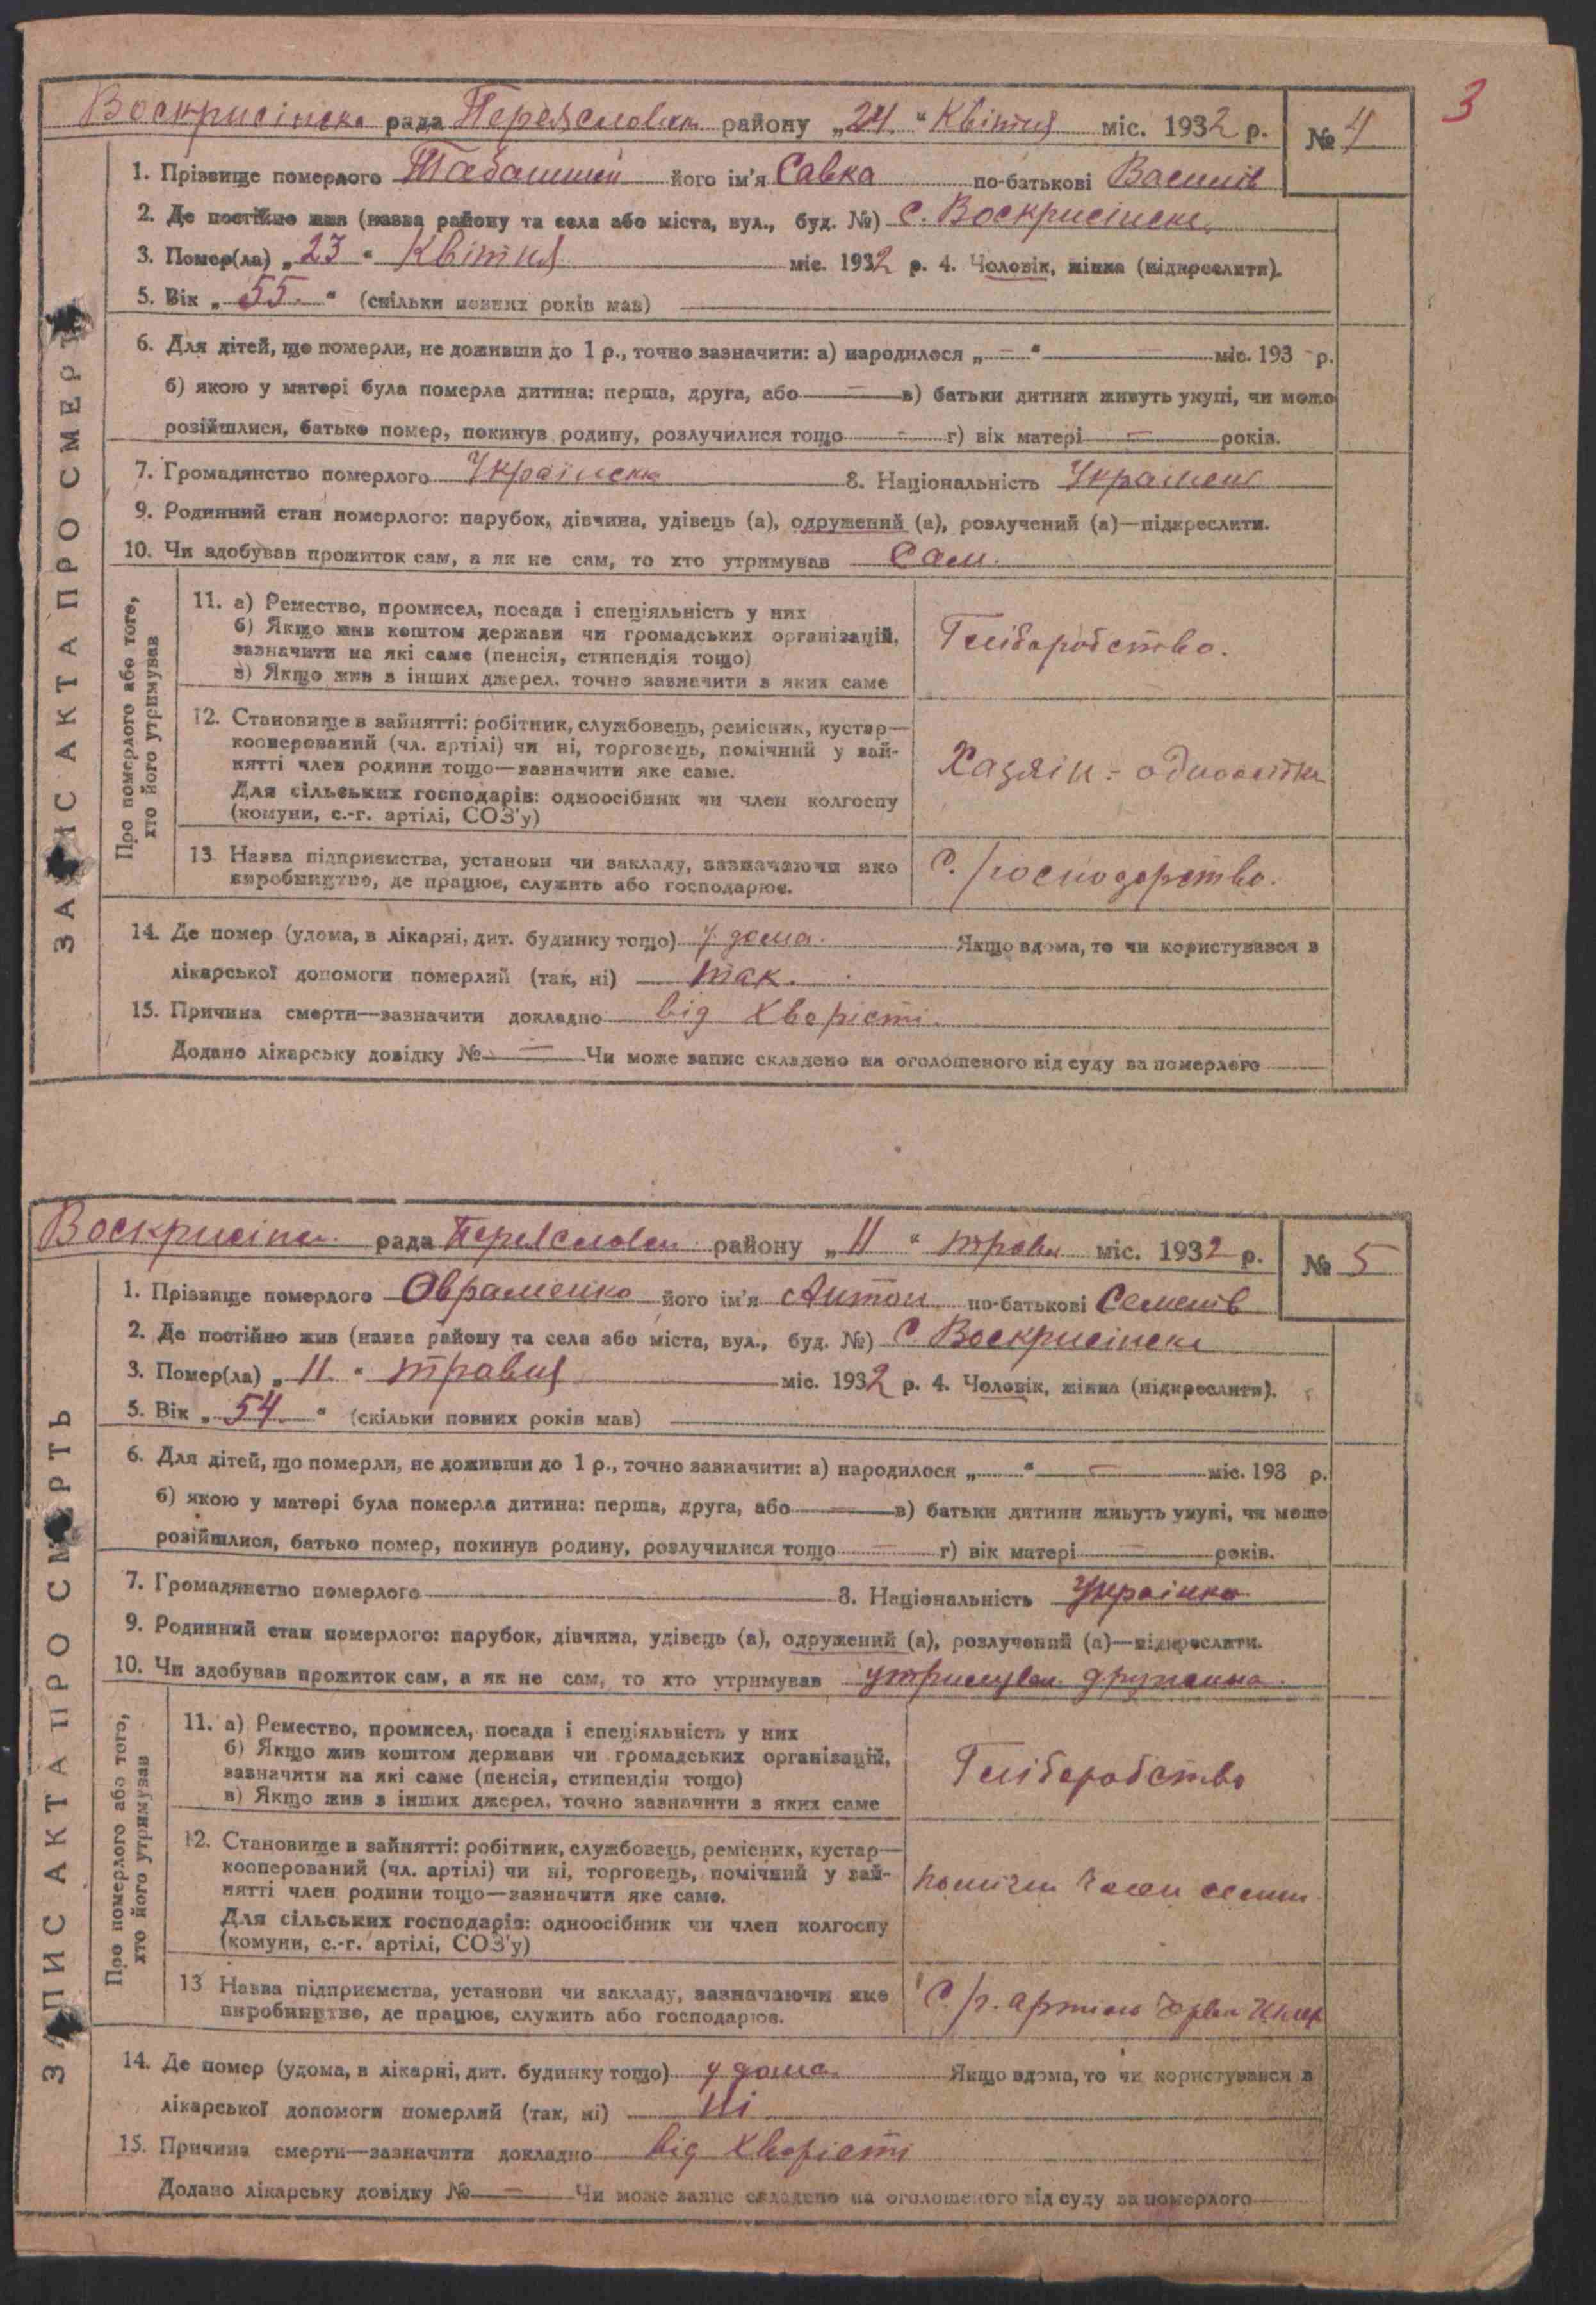 3
Воскрисінська рада Переяславськ району „24“ Квітня міс. 1932 р. № 4
1. Прізвище померлого його ім'я Савка по-батькові Васильів
2. Де постійно жив (назва району та села або міста, вул., буд. №) с. Воскрисінське
3. Помер(ла) „23“ Квітня міс. 1932 р. 4. Чоловік, жінка (підкреслити).
5. Вік „55.“ (скільки повних років мав)
6. Для дітей, що померли, не доживши до 1 р., точно зазначити: а) народилося „—“ — міс. 193 - р.
б) якою у матері була померла дитина: перша, друга, або — в) батьки дитини живуть укупі, чи може
розійшлися, батько помер, покинув родину, розлучилися тощо - г) вік матері — років.
7. Громадянство померлого Українське 8. Національність Украінець
9. Родинний стан померлого: парубок, дівчина, удівець (а), одружений (а), розлучений (а)—підкреслити.
10. Чи здобував прожиток сам, а як не сам, то хто утримував Сам.
ЗАПИС АКТА ПРО СМЕРТЬ
Про померлого або того, хто його утримував
11. а) Ремество, промисел, посада і спеціяльність у них
б) Якщо жив коштом держави чи громадських організацій,
зазначити на які саме (пенсія, стипендія тощо)
в) Якщо жив з інших джерел, точно зазначити з яких саме
Гліборобство.
12. Становище в зайнятті: робітник, службовець, ремісник, кустар—
кооперований (чл. артілі) чи ні, торговець, помічний у зай-
нятті член родини тощо—зазначити яке саме.
Для сільських господарів: одноосібник чи член колгоспу
(комуни, с.-г. артілі, СОЗ'у)
Хазяін - одноосібник
13 Назва підприємства, установи чи закладу, зазначаючи яке
виробництво, де працює, служить або господарює.
С. господарство.
14. Де помер (удома, в лікарні, дит. будинку тощо) у дома. Якщо вдома, то чи користувався з
лікарської допомоги померлий (так, ні) так.
15. Причина смерти—зазначити докладно від хворісті.
Додано лікарську довідку № — Чи може запис складено на оголошеного від суду за померлого
Воскрисінсь рада Переяславсь району „11“ травн міс. 1932 р. № 5
1. Прізвище померлого Овраменко його ім'я Антон по-батькові Семенів
2. Де постійно жив (назва району та села або міста, вул., буд. №) с. Воскрисінське
3. Помер(ла) „11.“ травня міс. 1932 р. 4. Чоловік, жінка (підкреслити).
5. Вік „54.“ (скільки повних років мав)
6. Для дітей, що померли, не доживши до 1 р., точно зазначити: а) народилося „ “ — міс. 193 р.
б) якою у матері була померла дитина: перша, друга, або — в) батьки дитини живуть укупі, чи може
розійшлися, батько помер, покинув родину, розлучилися тощо — г) вік матері — років.
7. Громадянство померлого 8. Національність Украінка
9. Родинний стан померлого: парубок, дівчина, удівець (а), одружений (а), розлучений (а)—підкреслити.
10. Чи здобував прожиток сам, а як не сам, то хто утримував утримувал дружина.
ЗАПИС АКТА ПРО СМЕРТЬ
Про померлого або того, хто його утримував
11. а) Ремество, промисел, посада і спеціяльність у них
б) Якщо жив коштом держави чи громадських організацій,
зазначити на які саме (пенсія, стипендія тощо)
в) Якщо жив з інших джерел, точно зазначити з яких саме
Гліборобство
12. Становище в зайнятті: робітник, службовець, ремісник, кустар—
кооперований (чл. артілі) чи ні, торговець, помічний у зай-
нятті член родини тощо—зазначити яке саме.
Для сільських господарів: одноосібник чи член колгоспу
(комуни, с.-г. артілі, СОЗ'у)
помічн член
13 Назва підприємства, установи чи закладу, зазначаючи яке
виробництво, де працює, служить або господарює.
С. г. артіль
14. Де помер (удома, в лікарні, дит. будинку тощо) у дома. Якщо вдома, то чи користувався з
лікарської допомоги померлий (так, ні) Ні
15. Причина смерти—зазначити докладно від хворісті
Додано лікарську довідку № — Чи може запис складено на оголошеного від суду за померлого